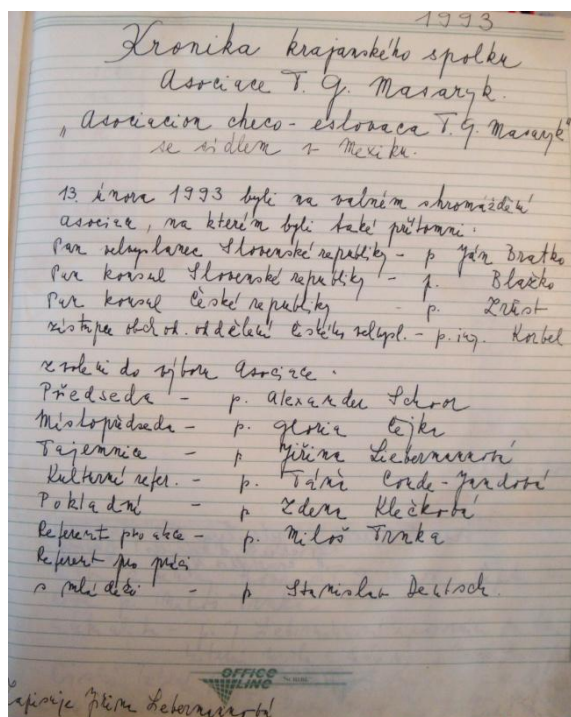 1993
Kronika krajanského spolku
Asociace T. G. Masaryk.
"Asociacion checo-eslovaca T.G. Masaryk"
se sídlem v Mexiku.
13. února 1993 byli na valném shromáždění
asociace, na kterém byli také přítomni:
Pan velvyslanec Slovenské republiky - p Ján Bratko
Pan konsul Slovenské republiky - p. Blažko
Pan konsul České republiky - p. Zrůst
zástupce obch. od. oddělení českého velvysl. - p. ing. Korbel
zvoleni do výboru Asociace.
Předseda - p. Alexander Schoor
Místopředseda - p. Gloria Čejka
Tajemnice - p Jiřina Liebermannová
Kulturní refer. - p. Táňa Conde-Jandová
Pokladní - p Zdena Klečková
Referent pro akce - p. Miloš Trnka
Referent pro práci
s mládeží - p Stanislav Deutsch.
OFFICE
LINE
Zapisuje Jiřina Liebermannová